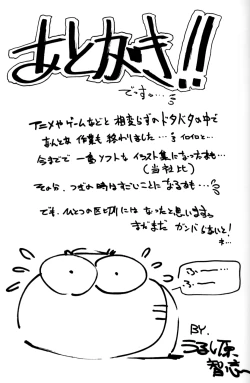 あとがき!!
でっす…
アニメやゲームなどと相変らずのドタバタの中で
なんとか作業も終わりました…イロイロと…
今までで一番ソフトなイラスト集になったかも…
(当社比)
その分、つぎの時はすごいことになるかも…
でも、ひとつの区切りにはなったと思います。
まだまだガンバらないと!
ふー…
ふー…
BY.
うるし原
智志